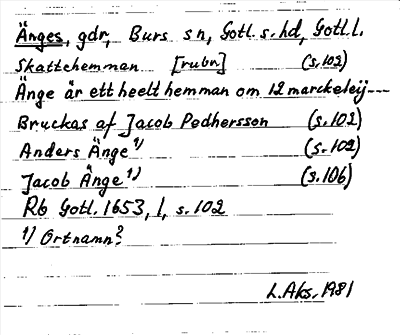 Änges, gdr, Burs sn, Gotl. s. hd, Gotl. l.
Skattehemman [rubr] (s.102)
Änge är ett heelt hemman om 12 marckeleij---
Bruckas af Jacob Pedhersson (s.102)
Anders Änge 1) (s.102)
Jacob Änge 1) (s.106)
Rb Gotl. 1653, 1, s.102
1) Ortnamn?
L.Aks. 1981